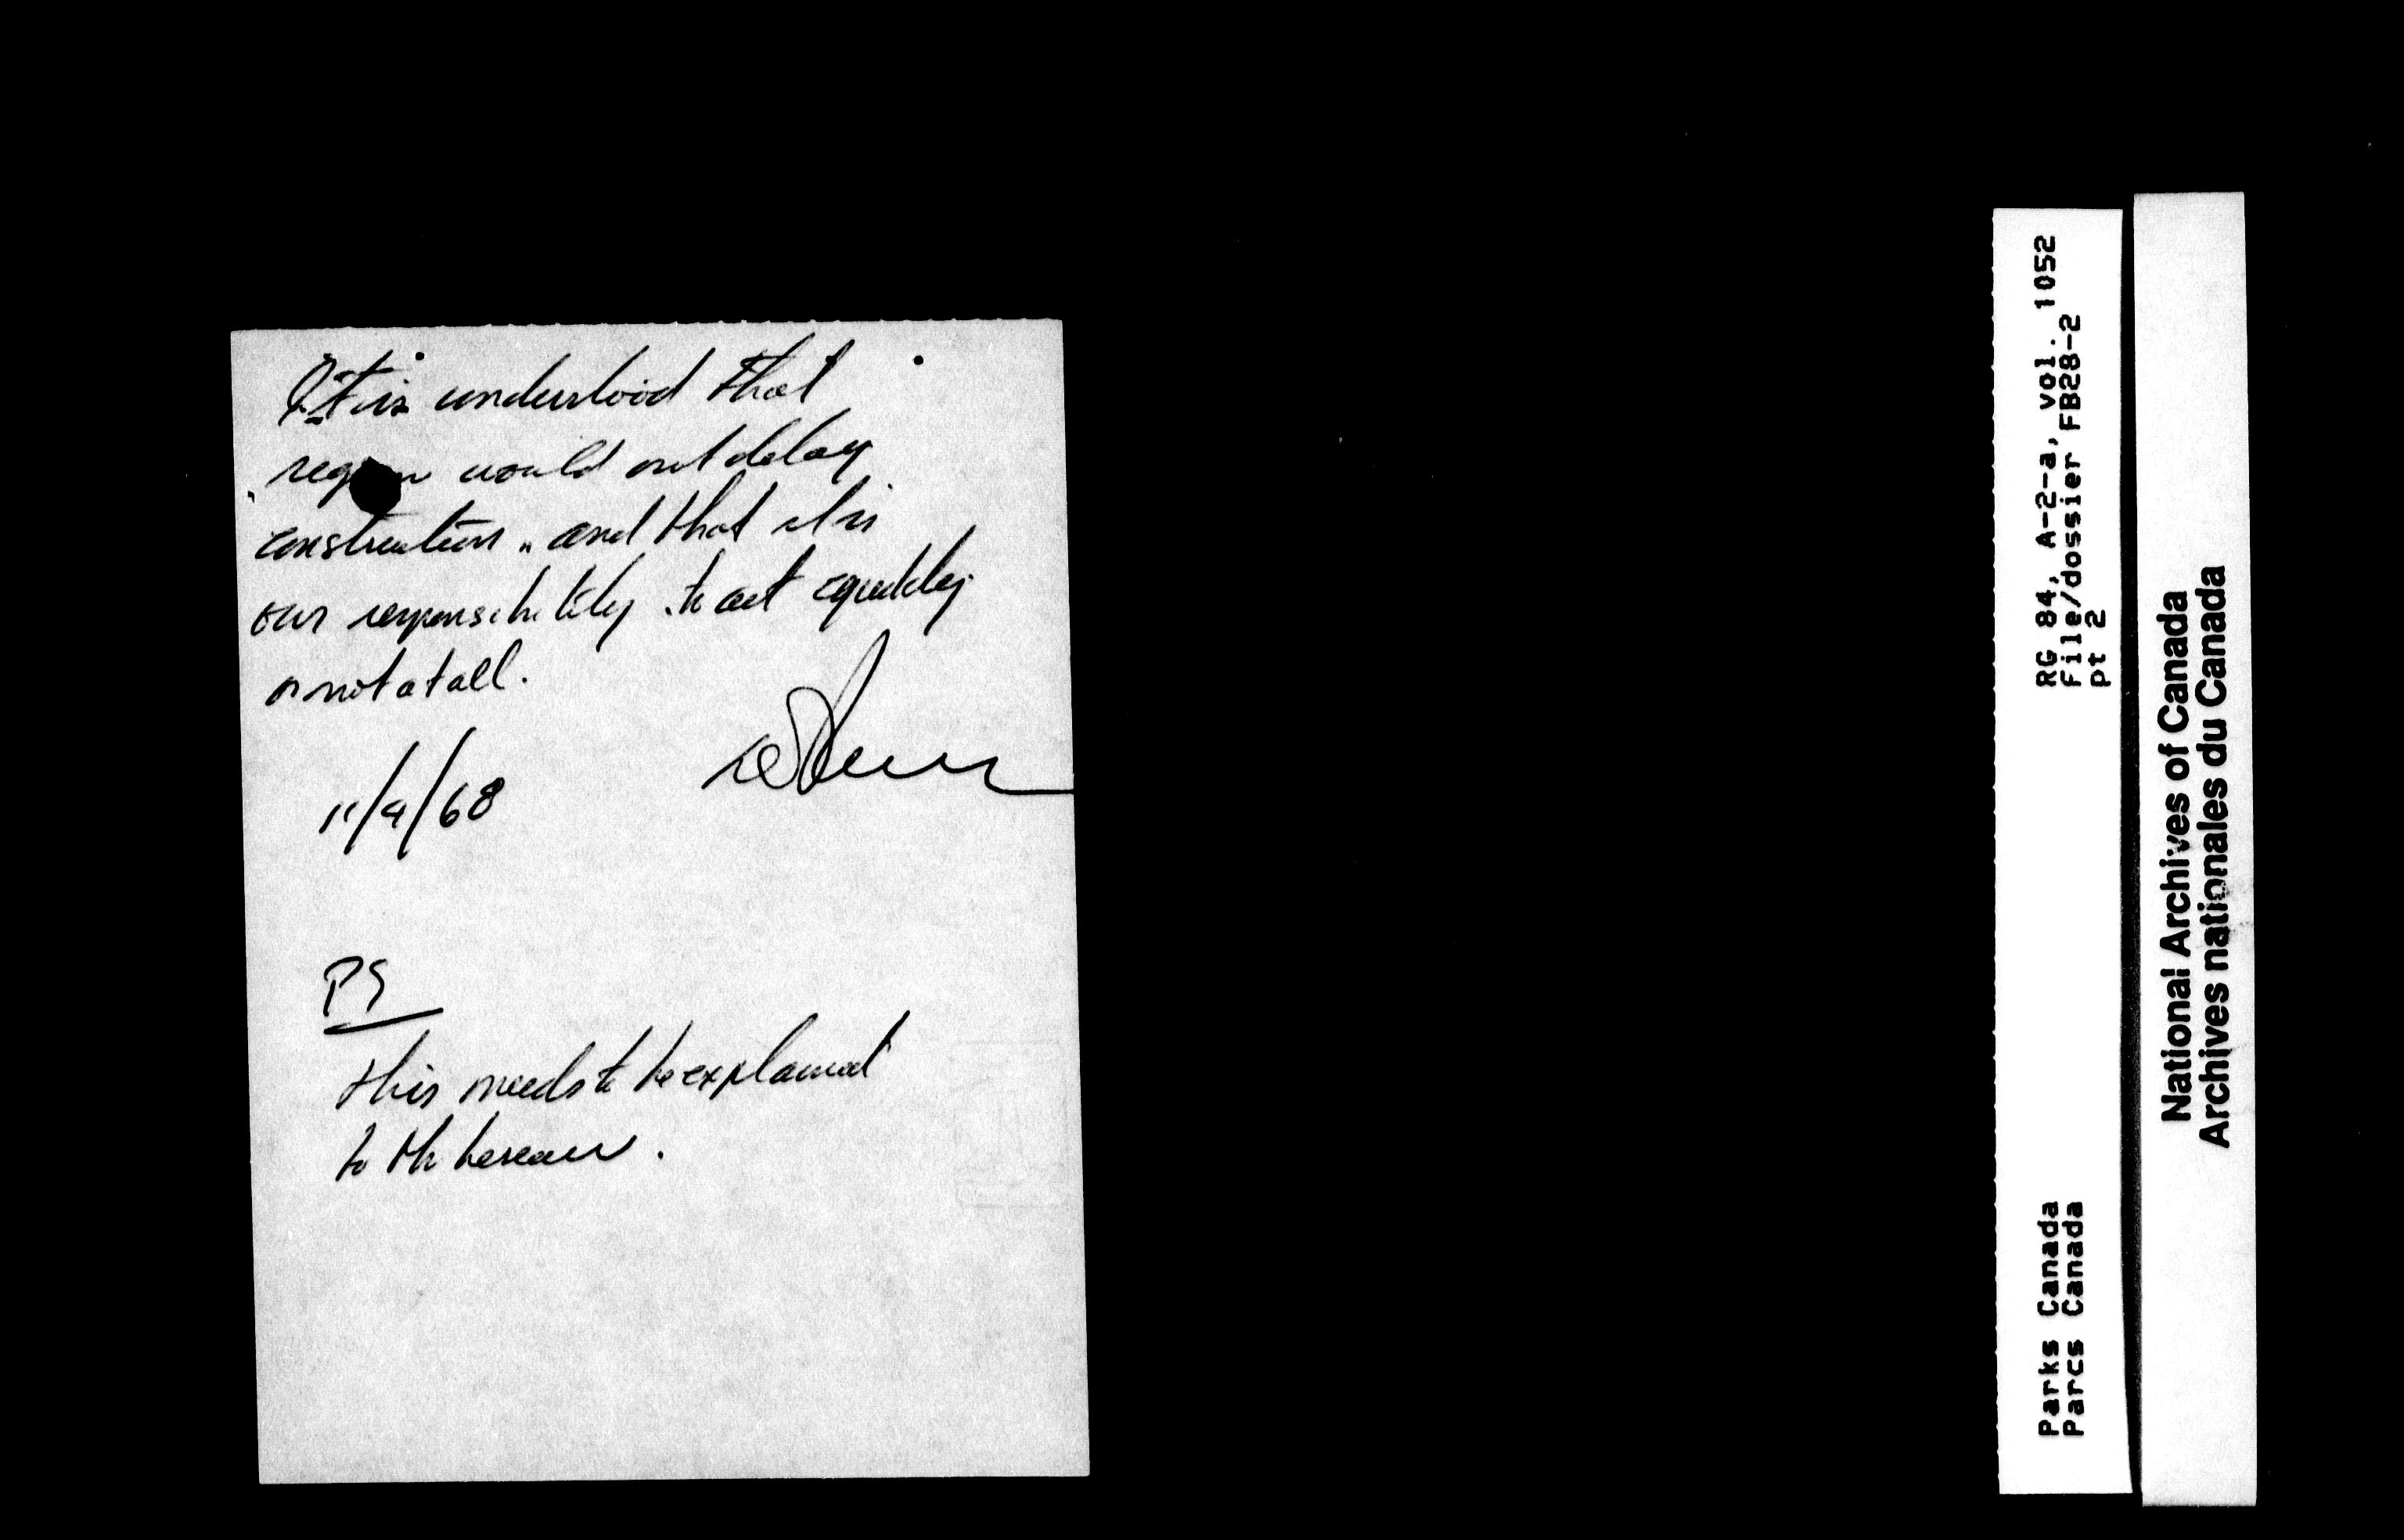 It is understood that
region would not delay
construction, and that it is
our responsibility to act quickly
or not at all.
11/9/68
PS
this needs to be explained
to the bureau.
RG 84, A-2-a, vol. 1052
File/dossier FB28-2
pt 2
Parks Canada
Parcs Canada
National Archives of Canada
Archives nationales du Canada